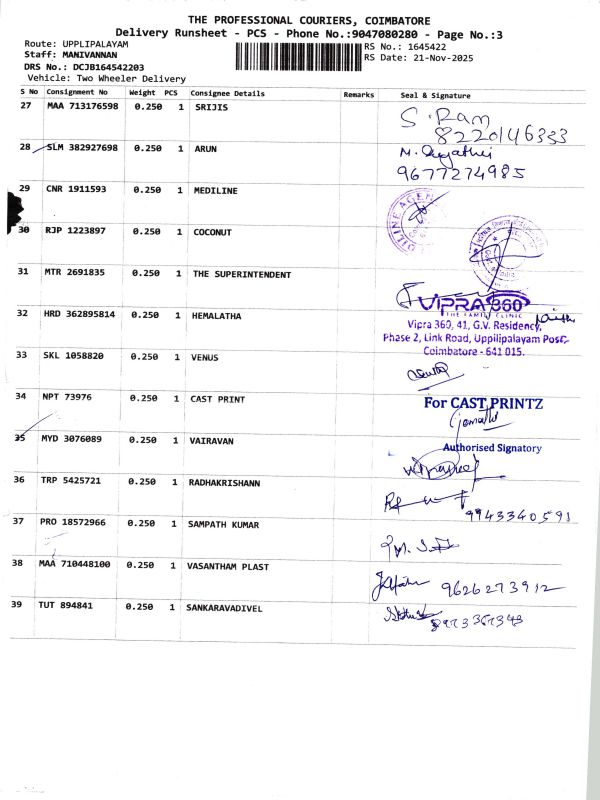 THE PROFESSIONAL COURIERS, COIMBATORE
Delivery Runsheet - PCS - Phone No.:9047080280 - Page No.:3
Route: UPPLIPALAYAM
RS No.: 1645422
Staff: MANIVANNAN
RS Date: 21-Nov-2025
DRS No.: DCJB164542203
Vehicle: Two Wheeler Delivery
S No Consignment No Weight PCS Consignee Details Remarks Seal & Signature
27 MAA 713176598 0.250 1 SRIJIS
S. Ram
8220146333
28 SLM 382927698 0.250 1 ARUN
9677274985
29 CNR 1911593 0.250 1 MEDILINE
30 RJP 1223897 0.250 1 COCONUT
31 MTR 2691835 0.250 1 THE SUPERINTENDENT
VIPRA 360
THE FAMILY CLINIC
32 HRD 362895814 0.250 1 HEMALATHA
Vipra 360, 41, G.V. Residency,
Phase 2, Link Road, Uppilipalayam Post,
Coimbatore - 641 015.
33 SKL 1058820 0.250 1 VENUS
34 NPT 73976 0.250 1 CAST PRINT
For CAST PRINTZ
Authorised Signatory
35 MYD 3076089 0.250 1 VAIRAVAN
36 TRP 5425721 0.250 1 RADHAKRISHANN
9943340591
37 PRO 18572966 0.250 1 SAMPATH KUMAR
38 MAA 710448100 0.250 1 VASANTHAM PLAST
9626273912
39 TUT 894841 0.250 1 SANKARAVADIVEL